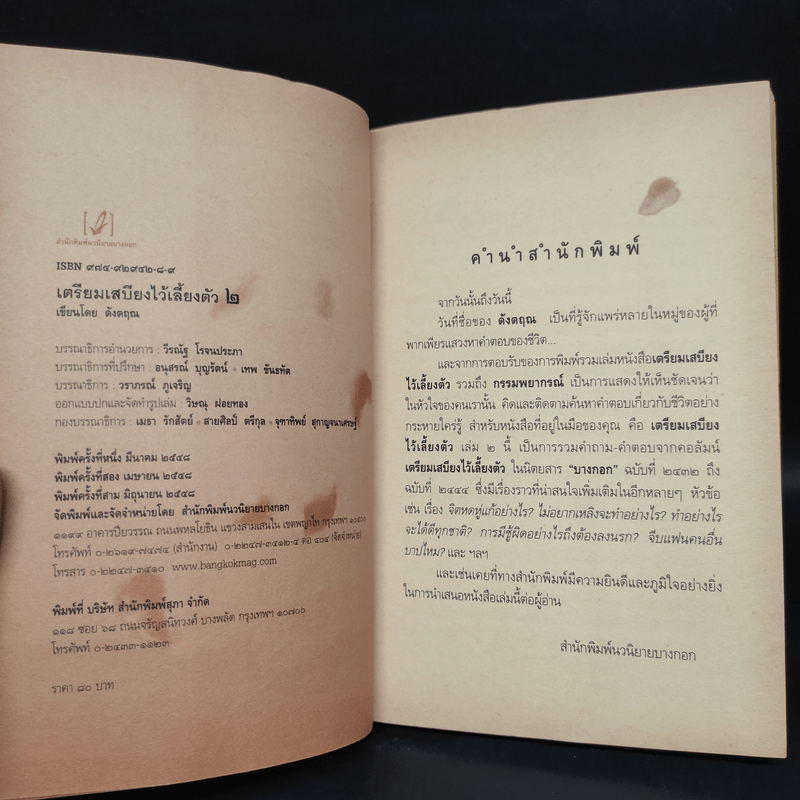 สำนักพิมพ์นวนิยายบางกอก
ISBN ๙๗๔-๙๒๙๔๒-๘-๙
เตรียมเสบียงไว้เลี้ยงตัว ๒
เขียนโดย ดังตฤณ
บรรณาธิการอำนวยการ : วีรณัฐ โรจนประภา
บรรณาธิการที่ปรึกษา : อนุสรณ์ บุญรัตน์ • เทพ ขันธหัต
บรรณาธิการ : วราภรณ์ ภูเจริญ
ออกแบบปกและจัดทำรูปเล่ม : วิษณุ ฝอยทอง
กองบรรณาธิการ : เมธา รักสัตย์ • สายศิลป์ ตรีกุล • จุฑาทิพย์ สุกาญจนาเศรษฐ์
พิมพ์ครั้งที่หนึ่ง มีนาคม ๒๕๔๘
พิมพ์ครั้งที่สอง เมษายน ๒๕๔๘
พิมพ์ครั้งที่สาม มิถุนายน ๒๕๔๘
จัดพิมพ์และจัดจำหน่ายโดย สำนักพิมพ์นวนิยายบางกอก
๑๑๙๙ อาคารปิยวรรณ ถนนพหลโยธิน แขวงสามเสนใน เขตพญาไท กรุงเทพฯ ๑๐๔๐๐
โทรศัพท์ ๐-๒๖๑๙-๗๔๗๔ (สำนักงาน) ๐-๒๒๔๗-๓๔๑๒-๔ ต่อ ๔๐๔ (จัดจำหน่าย)
โทรสาร ๐-๒๒๔๗-๓๔๑๐ www.bangkokmag.com
พิมพ์ที่ บริษัท สำนักพิมพ์สุภา จำกัด
๑๑๘ ซอย ๖๘ ถนนจรัญสนิทวงศ์ บางพลัด กรุงเทพฯ ๑๐๗๐๐
โทรศัพท์ ๐-๒๔๓๓-๑๑๒๓
ราคา ๘๐ บาท
คำนำสำนักพิมพ์
จากวันนั้นถึงวันนี้
วันที่ชื่อของ ดังตฤณ เป็นที่รู้จักแพร่หลายในหมู่ของผู้ที่
พากเพียรแสวงหาคำตอบของชีวิต...
และจากการตอบรับของการพิมพ์รวมเล่มหนังสือเตรียมเสบียง
ไว้เลี้ยงตัว รวมถึง กรรมพยากรณ์ เป็นการแสดงให้เห็นชัดเจนว่า
ในหัวใจของคนเรานั้น คิดและติดตามค้นหาคำตอบเกี่ยวกับชีวิตอย่าง
กระหายใคร่รู้ สำหรับหนังสือที่อยู่ในมือของคุณ คือ เตรียมเสบียง
ไว้เลี้ยงตัว เล่ม ๒ นี้ เป็นการรวมคำถาม-คำตอบจากคอลัมน์
เตรียมเสบียงไว้เลี้ยงตัว ในนิตยสาร “บางกอก” ฉบับที่ ๒๔๓๒ ถึง
ฉบับที่ ๒๔๔๔ ซึ่งมีเรื่องราวที่น่าสนใจเพิ่มเติมในอีกหลายๆ หัวข้อ
เช่น เรื่อง จิตหดหู่แก้อย่างไร? ไม่อยากเหลิงจะทำอย่างไร? ทำอย่างไร
จะได้ดีทุกชาติ? การมีชู้ผิดอย่างไรถึงต้องลงนรก? จีบแฟนคนอื่น
บาปไหม? และ ฯลฯ
และเช่นเคยที่ทางสำนักพิมพ์มีความยินดีและภูมิใจอย่างยิ่ง
ในการนำเสนอหนังสือเล่มนี้ต่อผู้อ่าน
สำนักพิมพ์นวนิยายบางกอก